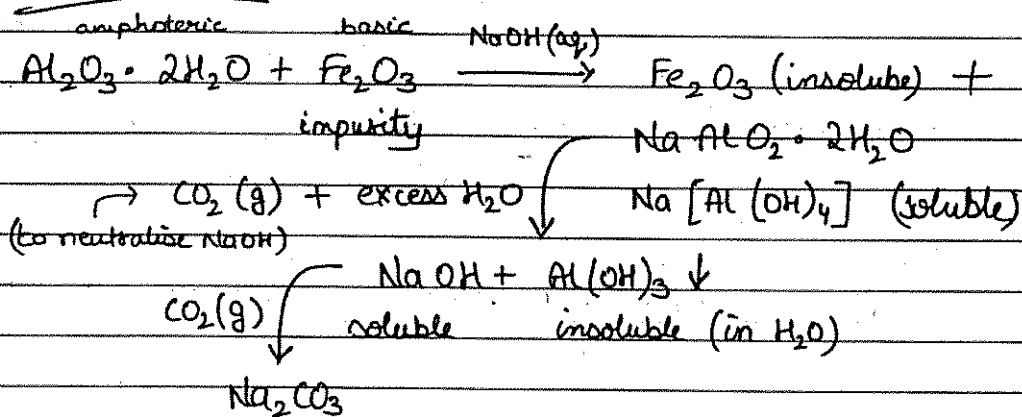 amphoteric basic NaOH (aq.)
Al₂O₃ • 2H₂O + Fe₂O₃ → Fe₂O₃ (insolube) +
impurity NaAlO₂ • 2H₂O
→ CO₂ (g) + excess H₂O Na [Al (OH)₄] (soluble)
(to neutralise NaOH)
NaOH + Al(OH)₃ ↓
CO₂(g) soluble insoluble (in H₂O)
Na₂CO₃